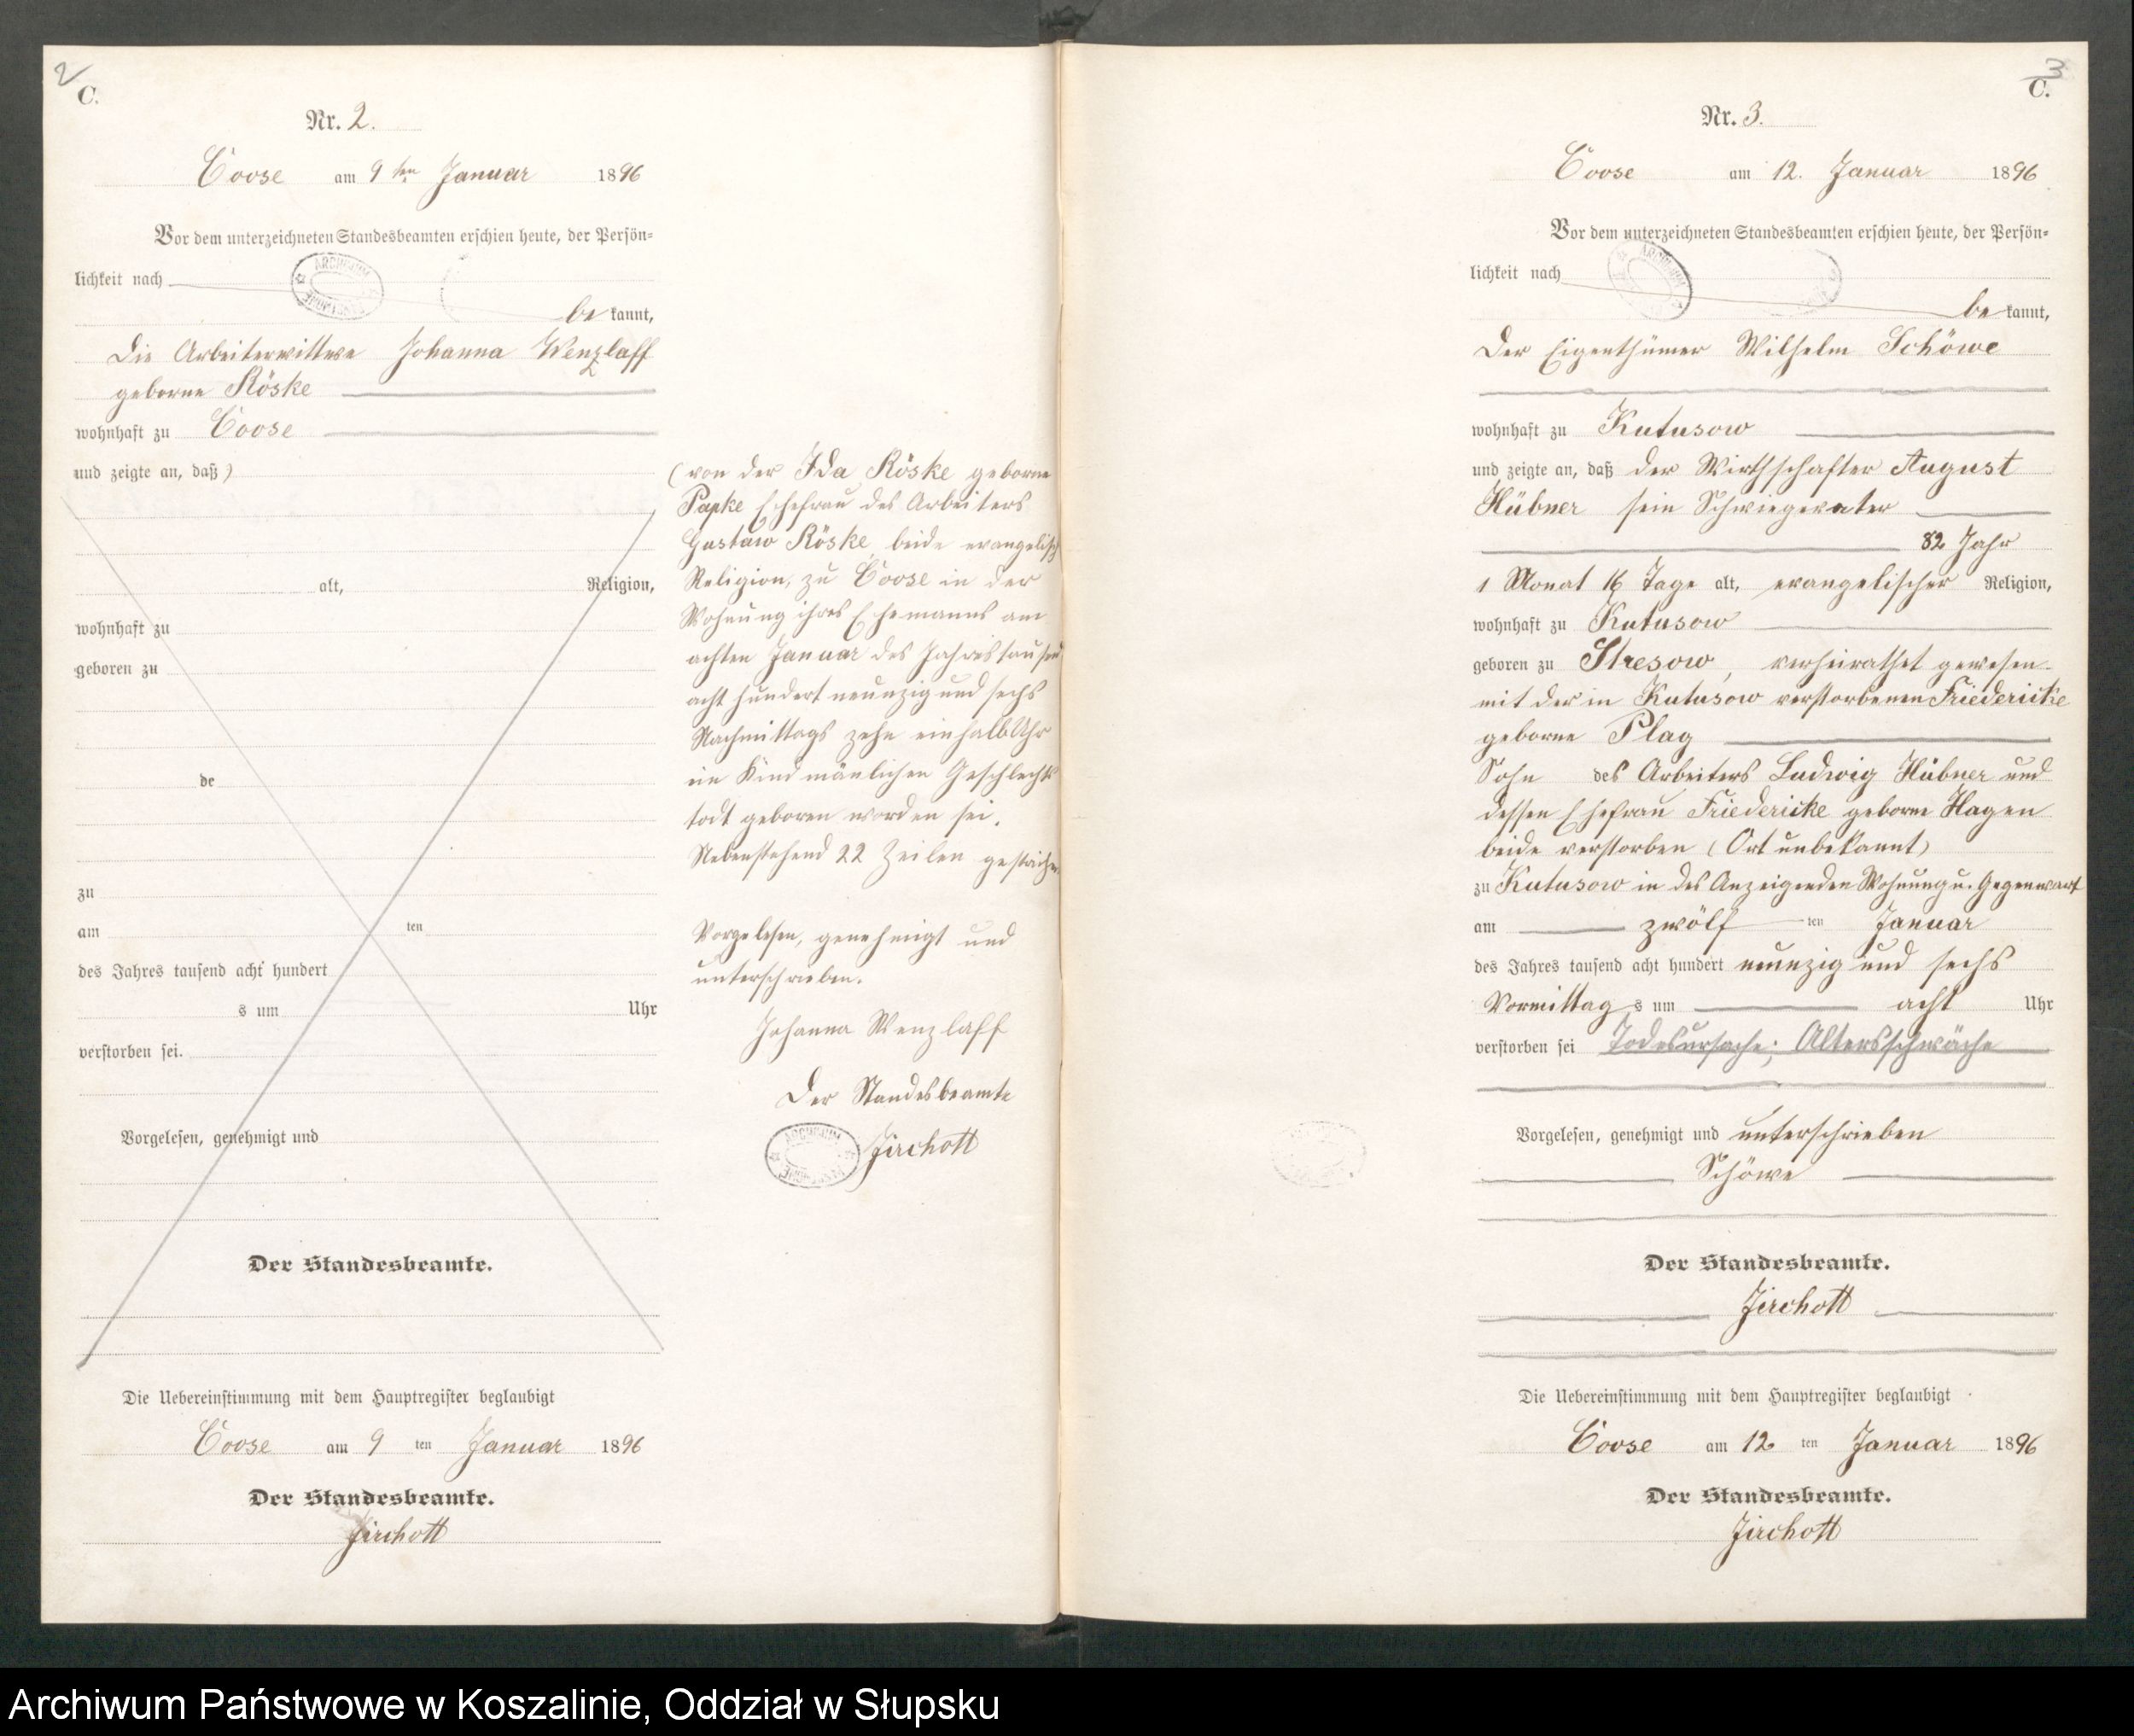 2
C.
Nr. 2.
Coose am 9ten Januar 1896
Vor dem unterzeichneten Standesbeamten erschien heute, der Persön-
lichkeit nach
be kannt,
die Arbeiterwittwe Johanna Wenzlaff
geborne Röske
wohnhaft zu Coose
und zeigte an, daß)
alt, Religion,
wohnhaft zu
geboren zu
de
zu
am ten
des Jahres tausend acht hundert
s um Uhr
verstorben sei.
Vorgelesen, genehmigt und
Der Standesbeamte.
Die Uebereinstimmung mit dem Hauptregister beglaubigt
Coose am 9 ten Januar 1896
Der Standesbeamte.
Zirchott
(von der Ida Röske geborne
Papke Ehefrau des Arbeiters
Gustaw Röske, beide evangelisch
Religion, zu Coose in der
Wohnung ihres Ehemanns am
achten Januar des Jahres tausend
acht hundert neunzig und sechs
Nachmittags zehn einhalb Uhr
ein Kind mänlichen Geschlechts
todt geboren worden sei.
Nebenstehend 22 Zeilen gestrichen.
Vorgelesen, genehmigt und
unterschrieben.
Johanna Wenzlaff
Der Standesbeamte
ARCHIWUM
Zirchott
3
C.
Nr. 3.
Coose am 12. Januar 1896
Vor dem unterzeichneten Standesbeamten erschien heute, der Persön-
lichkeit nach
be kannt,
Der Eigenthümer Wilhelm Schöwe
wohnhaft zu Kutusow
und zeigte an, daß der Wirthschafter August
Hübner sein Schwiegervater
82 Jahr
1 Monat 16 Tage alt, evangelischer Religion,
wohnhaft zu Kutusow
geboren zu Stresow, verheirathet gewesen
mit der in Kutusow verstorbenen Friedericke
geborne Plag
Sohn des Arbeiters Ludwig Hübner und
dessen Ehefrau Friedericke geborne Hagen
beide verstorben (Ort unbekannt)
zu Kutusow in des Anzeigenden Wohnung u. Gegenwart
am zwölf ten Januar
des Jahres tausend acht hundert neunzig und sechs
Vormittag s um acht Uhr
verstorben sei Todesursache: Altersschwäche
Vorgelesen, genehmigt und unterschrieben
Schöwe
Der Standesbeamte.
Zirchott
Die Uebereinstimmung mit dem Hauptregister beglaubigt
Coose am 12 ten Januar 1896
Der Standesbeamte.
Zirchott
Archiwum Państwowe w Koszalinie, Oddział w Słupsku